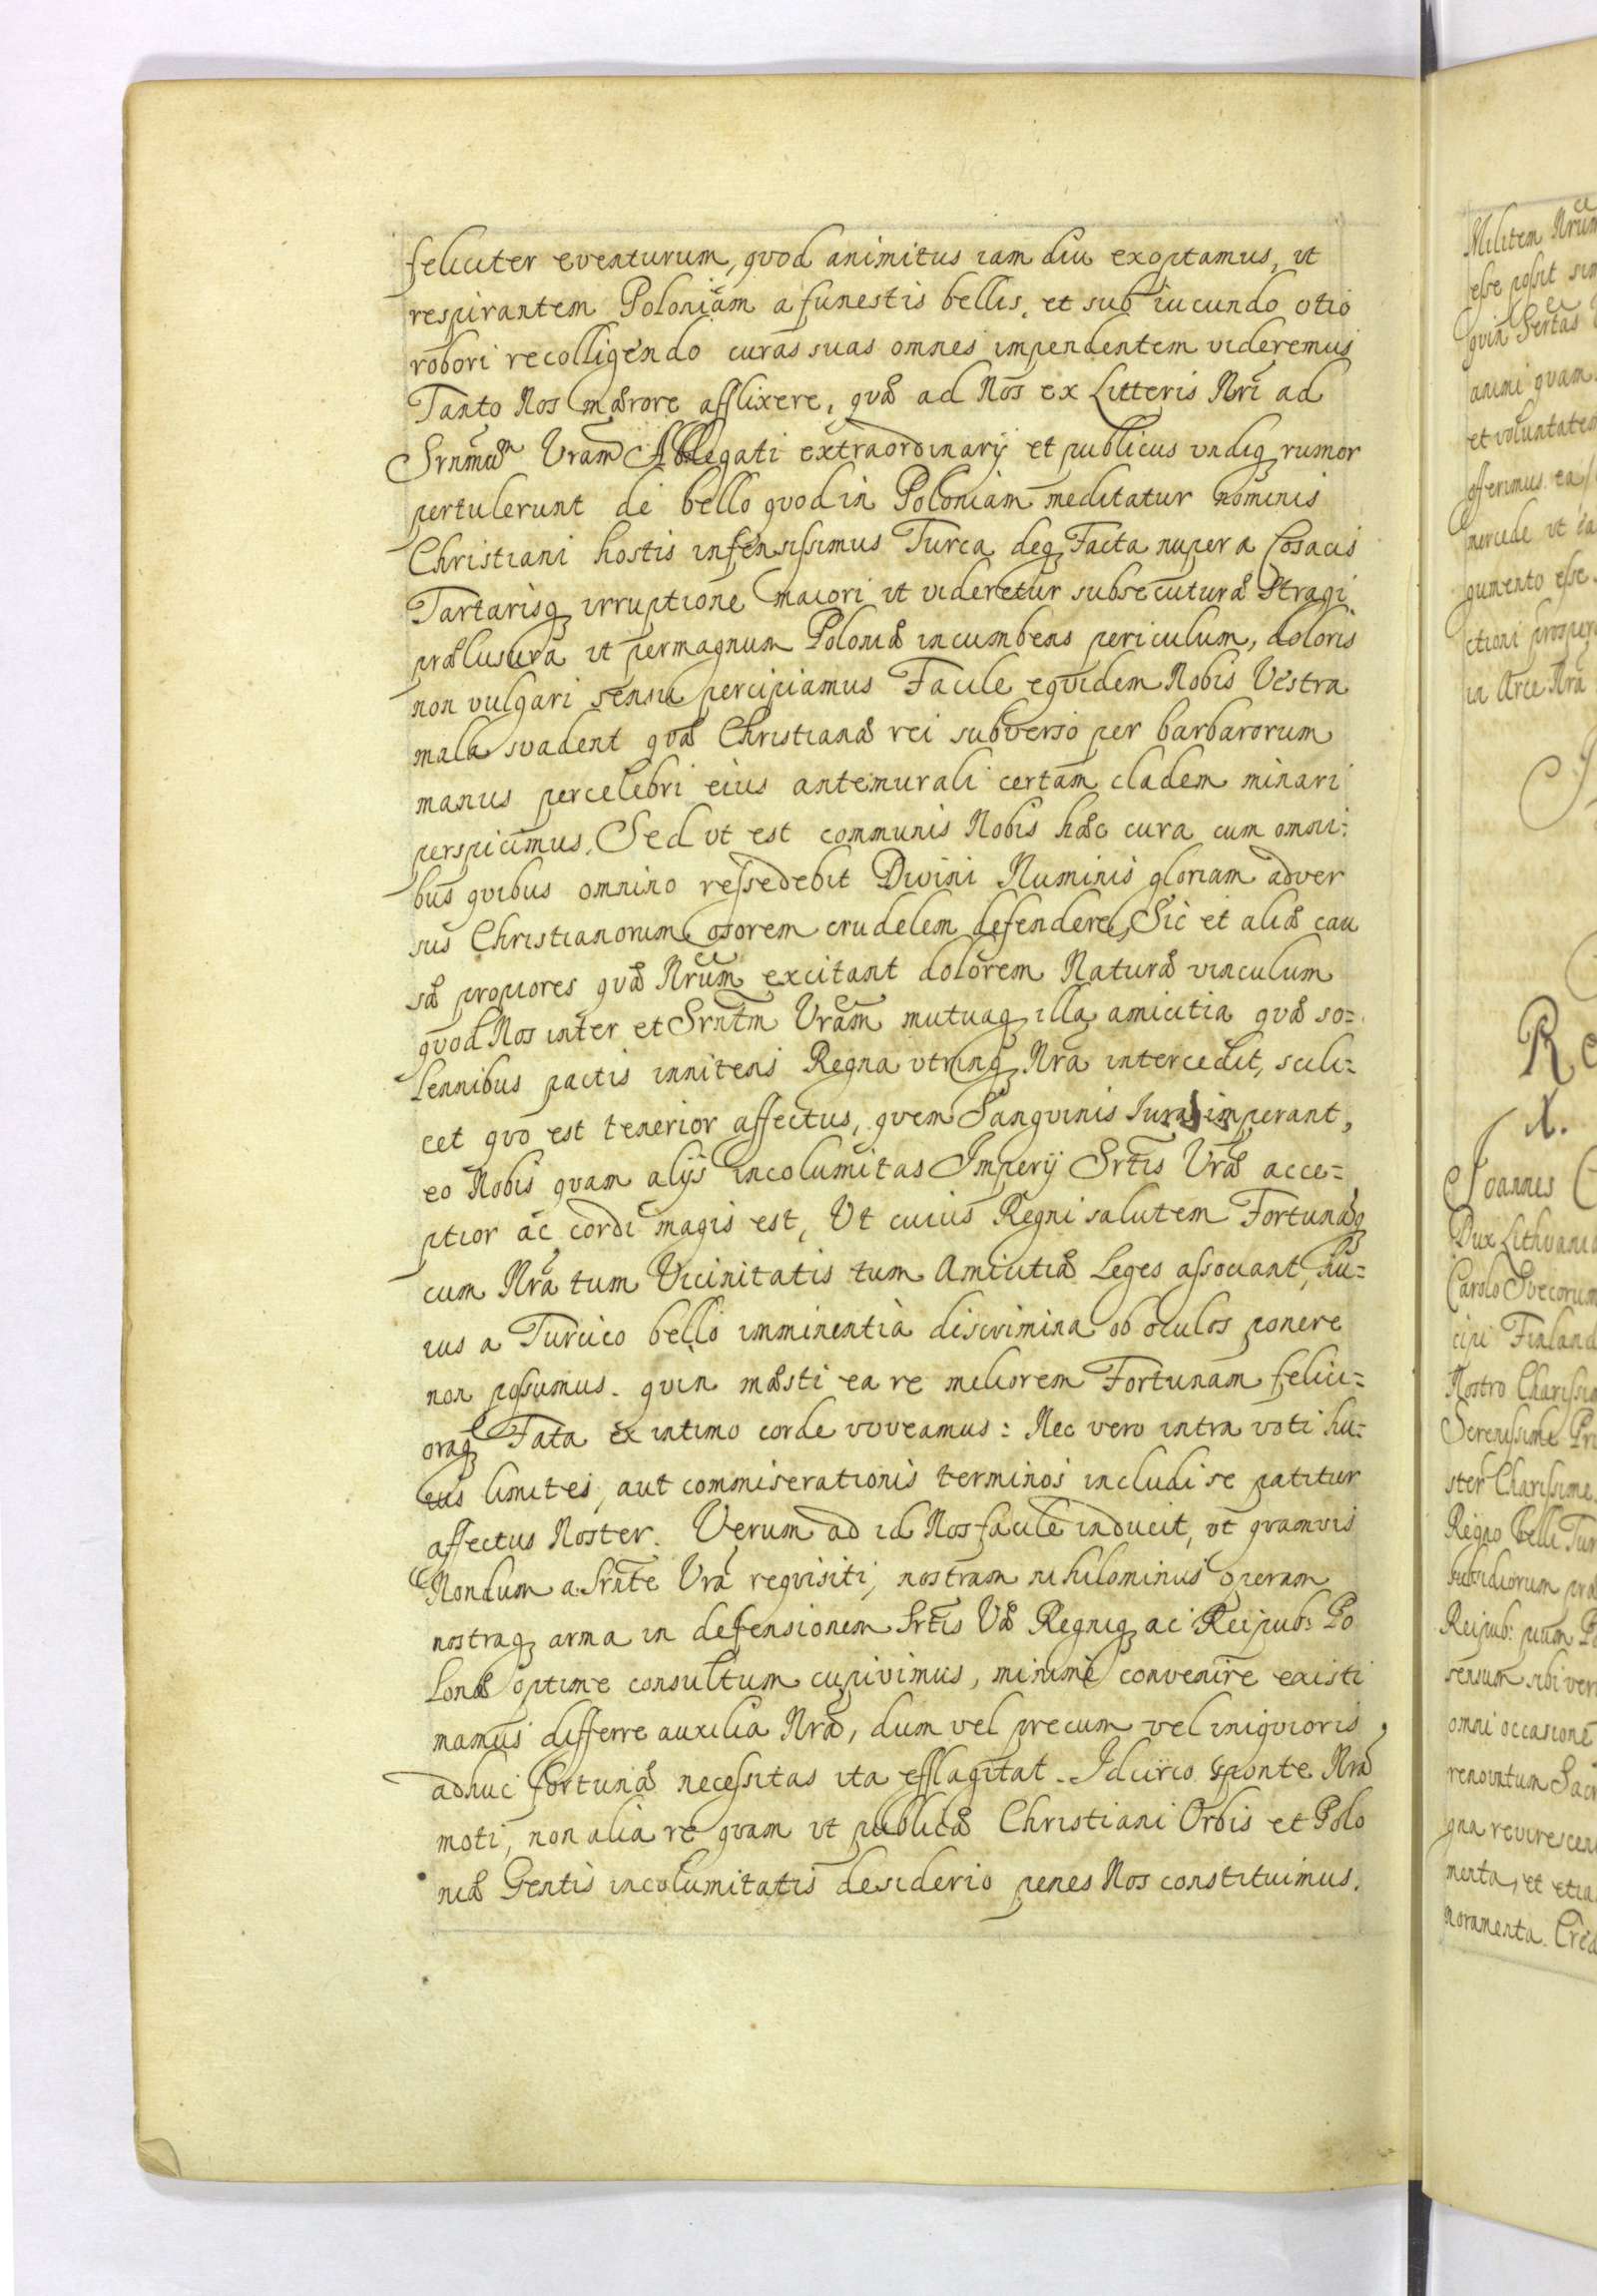 feliciter eventurum, qvod animitus iam diu exoptamus, ut
respirantem Poloniam a funestis bellis, et sub iucundo otio
robori recolligendo curas suas omnes impendentem videremus
Tanto Nos mærore afflixere, qvæ ad Nos ex Litteris Nri ad
Srnmam Vram Ablegati extraordinarij et publicus undiq rumor
pertulerunt de bello qvod in Poloniam meditatur nominis
Christiani hostis infensissimus Turca deq Facta nuper a Cosacis
Tartarisq irruptione maiori ut videretur subsecuturæ Stragi
prælusura ut permagnum Poloniæ incumbens periculum, doloris
non vulgari sensu percipiamus Facile eqvidem Nobis Vestra
mala svadent qvæ Christianæ rei subversio per barbarorum
manus percelebri eius antemurali certam cladem minari
perspicimus. Sed ut est communis Nobis hæc cura cum omni=
bus qvibus omnino ressedebit Divini Numinis gloriam adver
sus Christianorum osorem crudelem defendere, Sic et aliæ cau
sæ propiores qvæ Nrum excitant dolorem Naturæ vinculum
qvod Nos inter et Srntm Vram mutuaq illa amicitia qvæ so=
lennibus pactis innitens Regna utrinq Nra intercedit, scili=
cet qvo est tenerior affectus, qvem Sangvinis Iura imperant,
eo Nobis qvam alijs incolumitas Imperij Srtis Vræ acce=
ptior ac cordi magis est, Ut cuius Regni salutem Fortunasq
cum Nra tum Vicinitatis tum Amicitiæ Leges associant, hu=
ius a Turcico bello imminentia discrimina ob oculos ponere
non possumus. qvin mæsti ea re meliorem Fortunam felici=
oraq Fata ex intimo corde voveamus: Nec vero intra voti hu=
ius limites, aut commiserationis terminos includi se patitur
affectus Noster. Verum ad id Nos facile inducit, ut qvamvis
Nondum a Srnte Vra reqvisiti, nostram nihilominus operam
nostraq arma in defensionem Srtis Væ Regniq ac Reipub: Po
lonæ optime consultum cupivimus, minime convenire existi
mamus differre auxilia Nra, dum vel precum vel iniqvioris
adhuc fortunæ necessitas ita efflagitat. Idcirco sponte Nra
moti, non alia re qvam ut publicæ Christiani Orbis et Polo
næ Gentis incolumitatis desiderio penes Nos constituimus.
Militem Nrum
esse possit
qvin Sertas
animi qvam
et voluntatem
offerimus ea
mercede ut
gumento esse
ctioni prosper
in Arce Nra
Re
Joannes
Dux Lithvani
Carolo Svecorum
cipi Finland
Nostro Charissi
Serenissime Pri
ster Charissime
Regno belli Tur
subsidiorum præ
Reipub: Po
sensum sibi ver
omni occasione
renovatum Sacr
gna revirescen
menta, et etia
noramenta. Cred